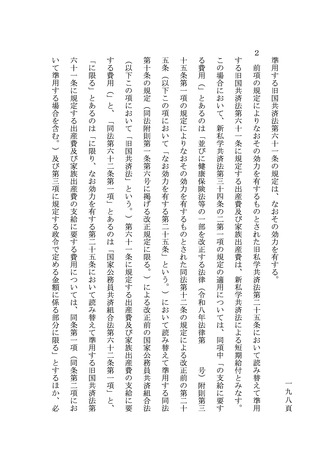 準用する旧国共済法第六十一条の規定は、なおその効力を有する。
２　前項の規定によりなおその効力を有するものとされた旧私学共済法第二十五条において読み替えて準用
する旧国共済法第六十一条に規定する出産費及び家族出産費は、新私学共済法による短期給付とみなす。
この場合において、新私学共済法第三十四条の二第一項の規定の適用については、同項中「の支給に要す
る費用（」とあるのは「並びに健康保険法等の一部を改正する法律（令和八年法律第　　　号）附則第三
十五条第一項の規定によりなおその効力を有するものとされた同法第十二条の規定による改正前の第二十
五条（以下この項において「なお効力を有する第二十五条」という。）において読み替えて準用する同法
第十条の規定（同法附則第一条第六号に掲げる改正規定に限る。）による改正前の国家公務員共済組合法
（以下この項において「旧国共済法」という。）第六十一条に規定する出産費及び家族出産費の支給に要
する費用（」と、「同法第六十二条第一項」とあるのは「国家公務員共済組合法第六十二条第一項」と、
「に限る」とあるのは「に限り、なお効力を有する第二十五条において読み替えて準用する旧国共済法第
六十一条に規定する出産費及び家族出産費の支給に要する費用については、同条第一項（同条第二項にお
いて準用する場合を含む。）及び第三項に規定する政令で定める金額に係る部分に限る」とするほか、必
一九八頁